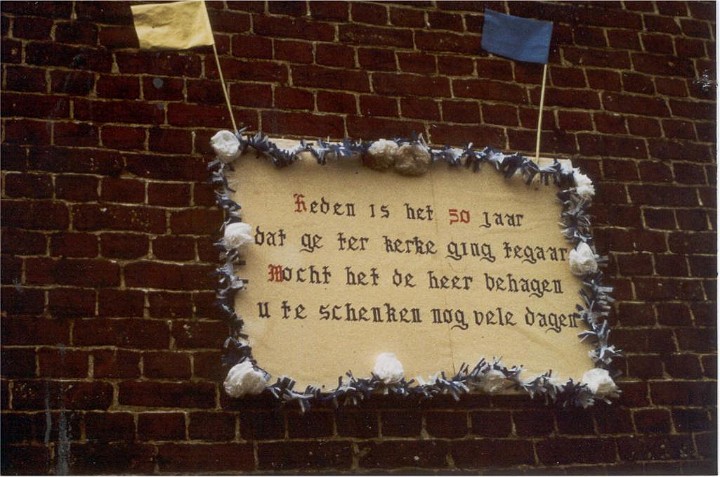 Heden is het 50 jaar
dat ge ter kerke ging tegaar
Mocht het de heer behagen
u te schenken nog vele dagen